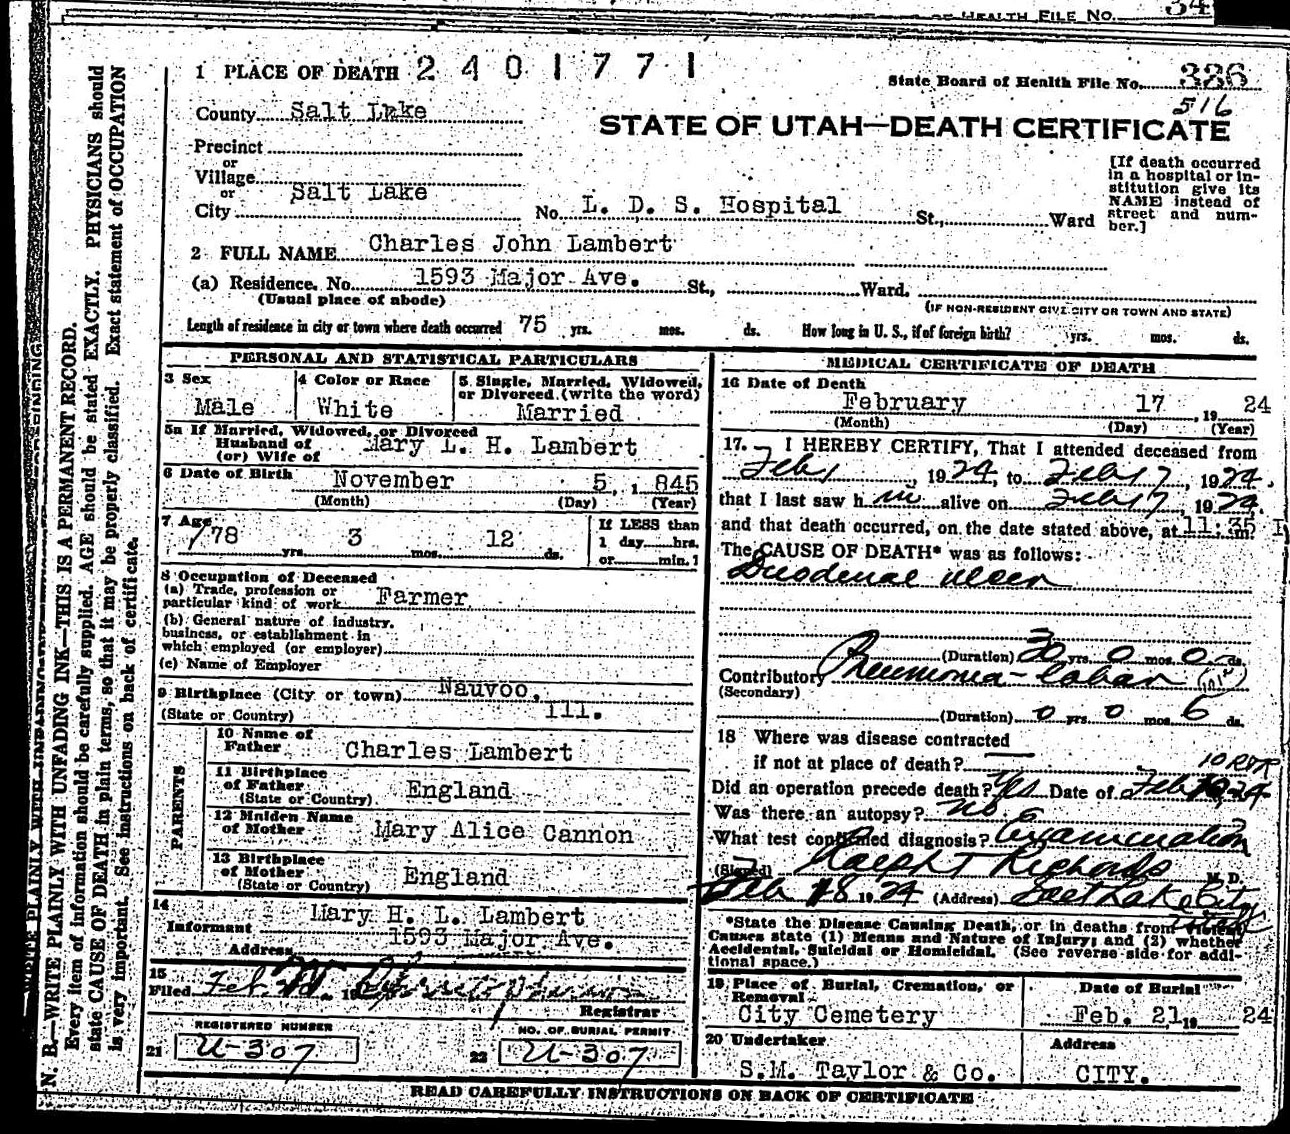 OF HEALTH FILE NO. 34
1 PLACE OF DEATH 2 4 0 1 7 7 1
State Board of Health File No. 386
516
County Salt Lake
STATE OF UTAH—DEATH CERTIFICATE
Precinct
or
Village
or
City Salt Lake No. L. D. S. Hospital St., Ward
[If death occurred
in a hospital or in-
stitution give its
NAME instead of
street and num-
ber.]
2 FULL NAME Charles John Lambert
(a) Residence. No. 1593 Major Ave. St., Ward.
(Usual place of abode)
(IF NON-RESIDENT GIVE CITY OR TOWN AND STATE)
Length of residence in city or town where death occurred 75 yrs. mos. ds. How long in U. S., if of foreign birth? yrs. mos. ds.
PERSONAL AND STATISTICAL PARTICULARS
3 Sex
Male
4 Color or Race
White
5 Single, Married, Widowed,
or Divorced (write the word)
Married
5a If Married, Widowed, or Divorced
Husband of
(or) Wife of
Mary L. H. Lambert
6 Date of Birth November 5, 1845
(Month) (Day) (Year)
7 Age
78 yrs. 3 mos. 12 ds.
If LESS than
1 day hrs.
or min.
8 Occupation of Deceased
(a) Trade, profession or
particular kind of work Farmer
(b) General nature of industry,
business, or establishment in
which employed (or employer)
(c) Name of Employer
9 Birthplace (City or town) Nauvoo,
(State or Country) Ill.
PARENTS
10 Name of
Father Charles Lambert
11 Birthplace
of Father England
(State or Country)
12 Maiden Name
of Mother Mary Alice Cannon
13 Birthplace
of Mother England
(State or Country)
14
Informant Mary H. L. Lambert
Address 1593 Major Ave.
15
Filed Feb.
Registrar
REGISTERED NUMBER
21 U-307
NO. OF BURIAL PERMIT
22 U-307
MEDICAL CERTIFICATE OF DEATH
16 Date of Death
February 17, 1924
(Month) (Day) (Year)
17. I HEREBY CERTIFY, That I attended deceased from
Feb 1, 1924, to Feb 17, 1924.
that I last saw h im alive on Feb 17, 1924.
and that death occurred, on the date stated above, at 11.35 m.
The CAUSE OF DEATH* was as follows:
Duodenal ulcer
(Duration) 30 yrs. 0 mos. 0 ds.
Contributory Pneumonia-lobar
(Secondary)
(Duration) 0 yrs. 0 mos. 6 ds.
18 Where was disease contracted
if not at place of death?
Did an operation precede death? Yes Date of Feb 24
Was there an autopsy? no
What test confirmed diagnosis? Examination
(Signed) Ralph T Richards M. D.
Feb 18 1924 (Address) Salt Lake City
Utah
*State the Disease Causing Death, or in deaths from Violent
Causes state (1) Means and Nature of Injury; and (2) whether
Accidental, Suicidal or Homicidal. (See reverse side for addi-
tional space.)
19 Place of Burial, Cremation, or
Removal
City Cemetery
Date of Burial
Feb. 21, 1924
20 Undertaker
S.M. Taylor & Co.
Address
CITY.
READ CAREFULLY INSTRUCTIONS ON BACK OF CERTIFICATE
N. B.—WRITE PLAINLY WITH UNFADING INK—THIS IS A PERMANENT RECORD.
Every item of information should be carefully supplied. AGE should be stated EXACTLY. PHYSICIANS should
state CAUSE OF DEATH in plain terms, so that it may be properly classified. Exact statement of OCCUPATION
is very important. See instructions on back of certificate.